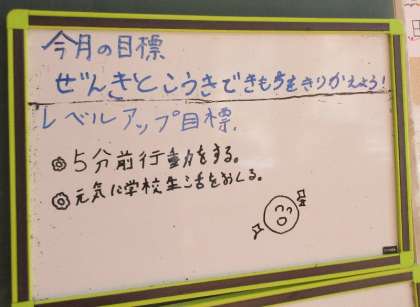 今月の目標
ぜんきとこうきできもちをきりかえよう!
レベルアップ目標.
5分前行動をする。
元気に学校生活をおくる。